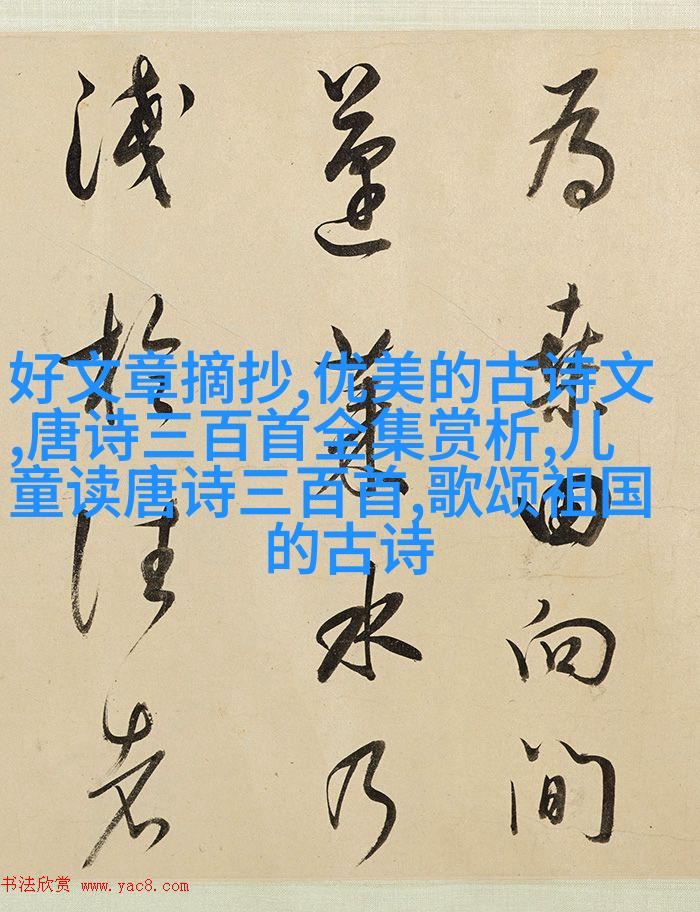 為桑田向間
蓬萊水乃
淺於往者
好文章摘抄,优美的古诗文
,唐诗三百首全集赏析,儿
童读唐诗三百首,歌颂祖国
的古诗
书法欣赏 www.yac8.com